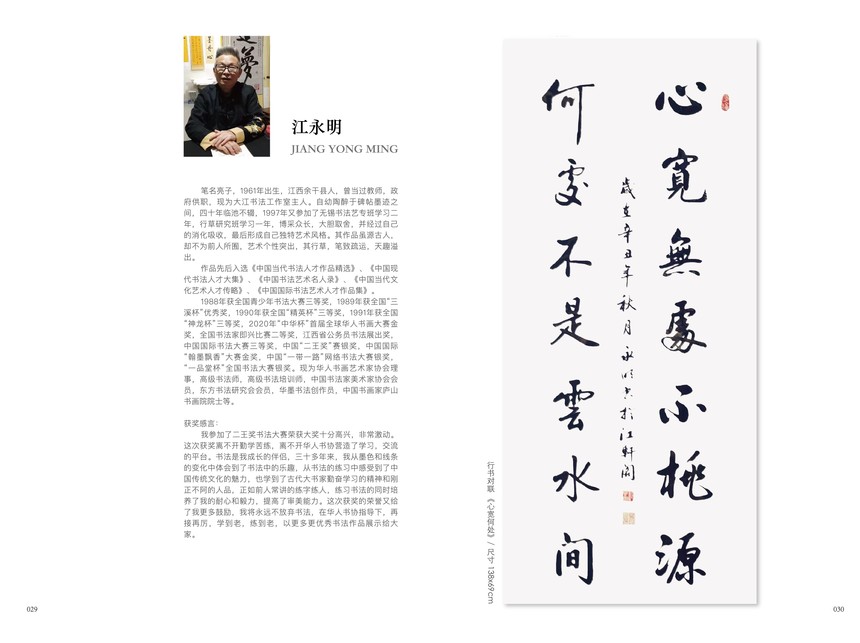 江永明
JIANG YONG MING
笔名亮子，1961年出生，江西余干县人，曾当过教师，政
府供职，现为大江书法工作室主人。自幼陶醉于碑帖墨迹之
间，四十年临池不辍，1997年又参加了无锡书法艺专班学习二
年，行草研究班学习一年，博采众长，大胆取舍，并经过自己
的消化吸收，最后形成自己独特艺术风格。其作品虽源古人，
却不为前人所囿，艺术个性突出，其行草，笔致疏运，天趣溢
出。
作品先后入选《中国当代书法人才作品精选》、《中国现
代书法人才大集》、《中国书法艺术名人录》、《中国当代文
化艺术人才传略》、《中国国际书法艺术人才作品集》。
1988年获全国青少年书法大赛三等奖，1989年获全国“三
溪杯”优秀奖，1990年获全国“精英杯”三等奖，1991年获全国
“神龙杯”三等奖，2020年“中华杯”首届全球华人书画大赛金
奖，全国书法家即兴比赛二等奖，江西省公务员书法展出奖，
中国国际书法大赛三等奖，中国“二王奖”赛银奖，中国国际
“翰墨飘香”大赛金奖，中国“一带一路”网络书法大赛银奖，
“一品堂杯”全国书法大赛银奖。现为华人书画艺术家协会理
事，高级书法师，高级书法培训师，中国书法家美术家协会会
员，东方书法研究会会员，华墨书法创作员，中国书画家庐山
书画院院士等。
获奖感言：
我参加了二王奖书法大赛荣获大奖十分高兴，非常激动。
这次获奖离不开勤学苦练，离不开华人书协营造了学习、交流
的平台。书法是我成长的伴侣，三十多年来，我从墨色和线条
的变化中体会到了书法中的乐趣，从书法的练习中感受到了中
国传统文化的魅力，也学到了古代大书家勤奋学习的精神和刚
正不阿的人品，正如前人常讲的字练人，练习书法的同时培
养了我的耐心和毅力，提高了审美能力。这次获奖的荣誉又给
了我更多鼓励，我将永远不放弃书法，在华人书协指导下，再
接再厉，学到老，练到老，以更多更优秀书法作品展示给大
家。
心寬無處不桃源
何處不是雲水间
歲在辛丑年秋月永明书於江軒阁
行书对联《心宽何处》/ 尺寸 138x69cm
029
030